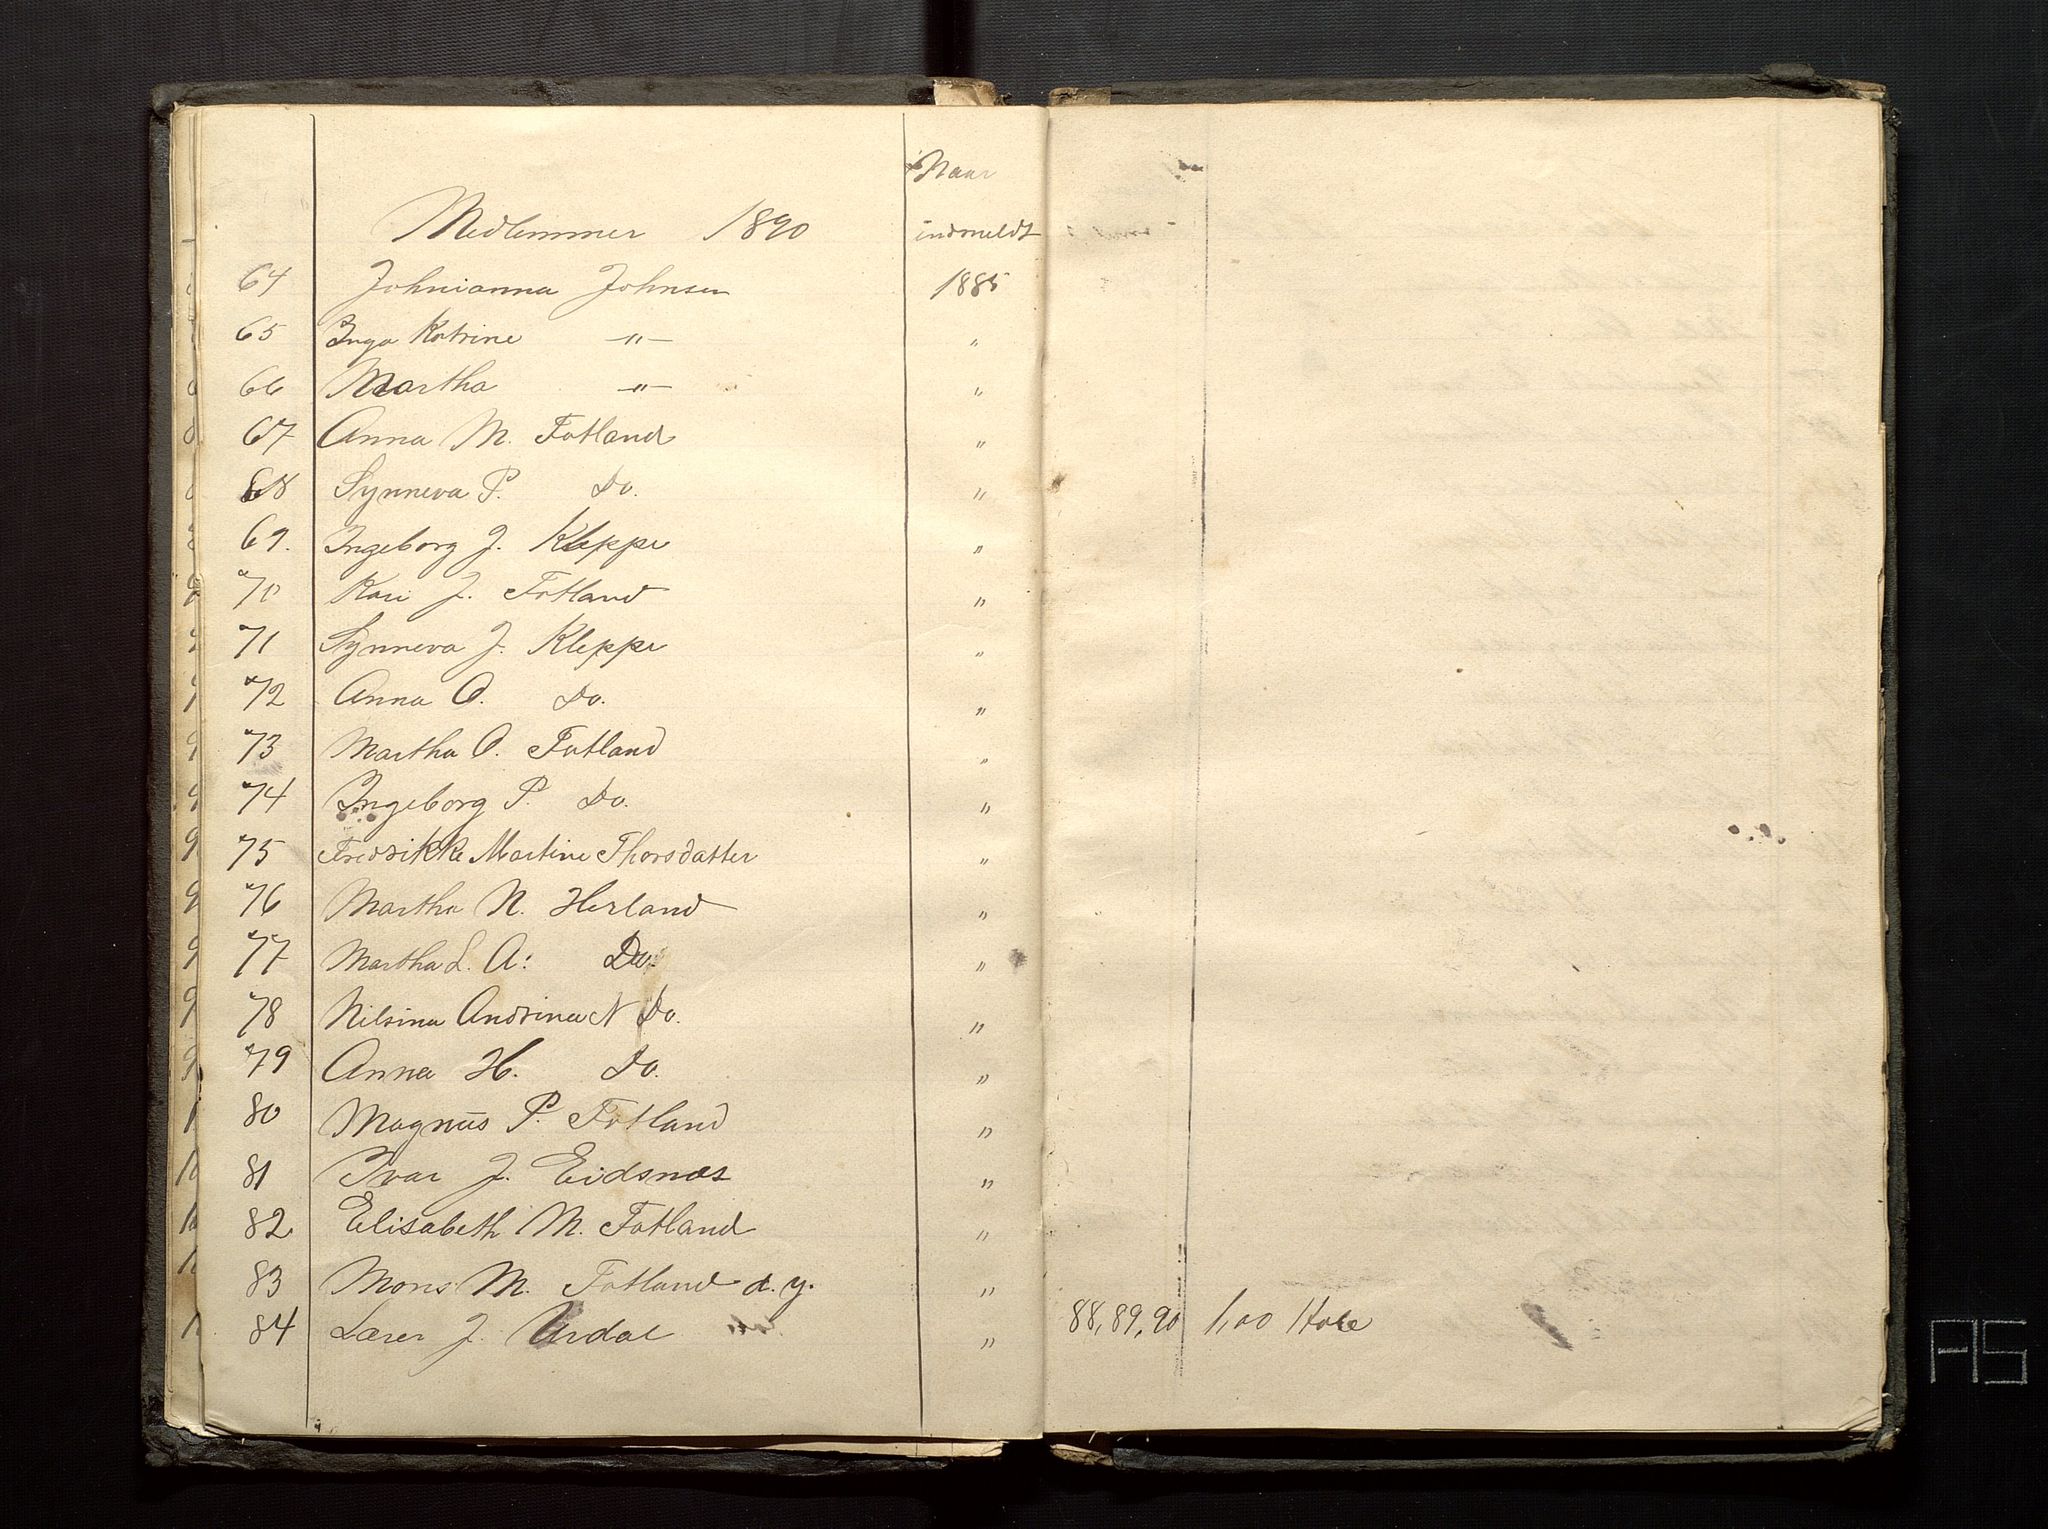 Naar
Medlemmer 1890 indmeldt
64 Johnianna Johnsen 1885
65 Inga Katrine -"- "
66 Martha -"- "
67 Anna M. Fotland "
68 Synneva P. Do. "
69. Ingeborg J. Kleppe "
70 Kari J. Fotland "
71 Synneva J. Kleppe "
72 Anna O. Do. "
73 Martha O. Fotland "
74 Ingeborg P. Do. "
75 Fredrikke Martine Thorsdatter "
76 Martha N. Herland "
77 Martha L. A: Do. "
78 Nilsina Andrina N Do. "
79 Anna H. Do. "
80 Magnus P. Fotland "
81 Ivar J. Eidsnæs "
82 Elisabeth M. Fotland "
83 Mons M. Fotland d. y. "
84 Lærer J. Urdal " 88, 89, 90 1,00
AS